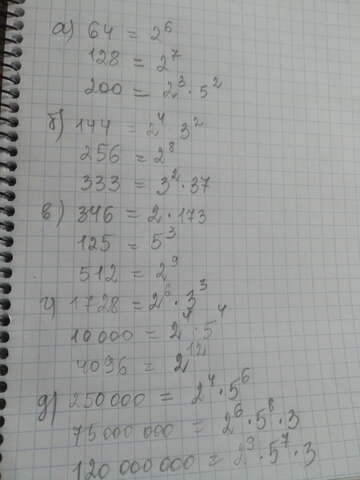 а) 64 = 2⁶
128 = 2⁷
200 = 2³·5²
б) 144 = 2⁴ 3²
256 = 2⁸
333 = 3²·37
в) 346 = 2·173
125 = 5³
512 = 2⁹
г) 1728 = 2⁶·3³
10000 = 2⁴·5⁴
4096 = 2¹²
д) 250000 = 2⁴·5⁶
75000000 = 2⁶·5⁸·3
120000000 = 2⁹·5⁷·3